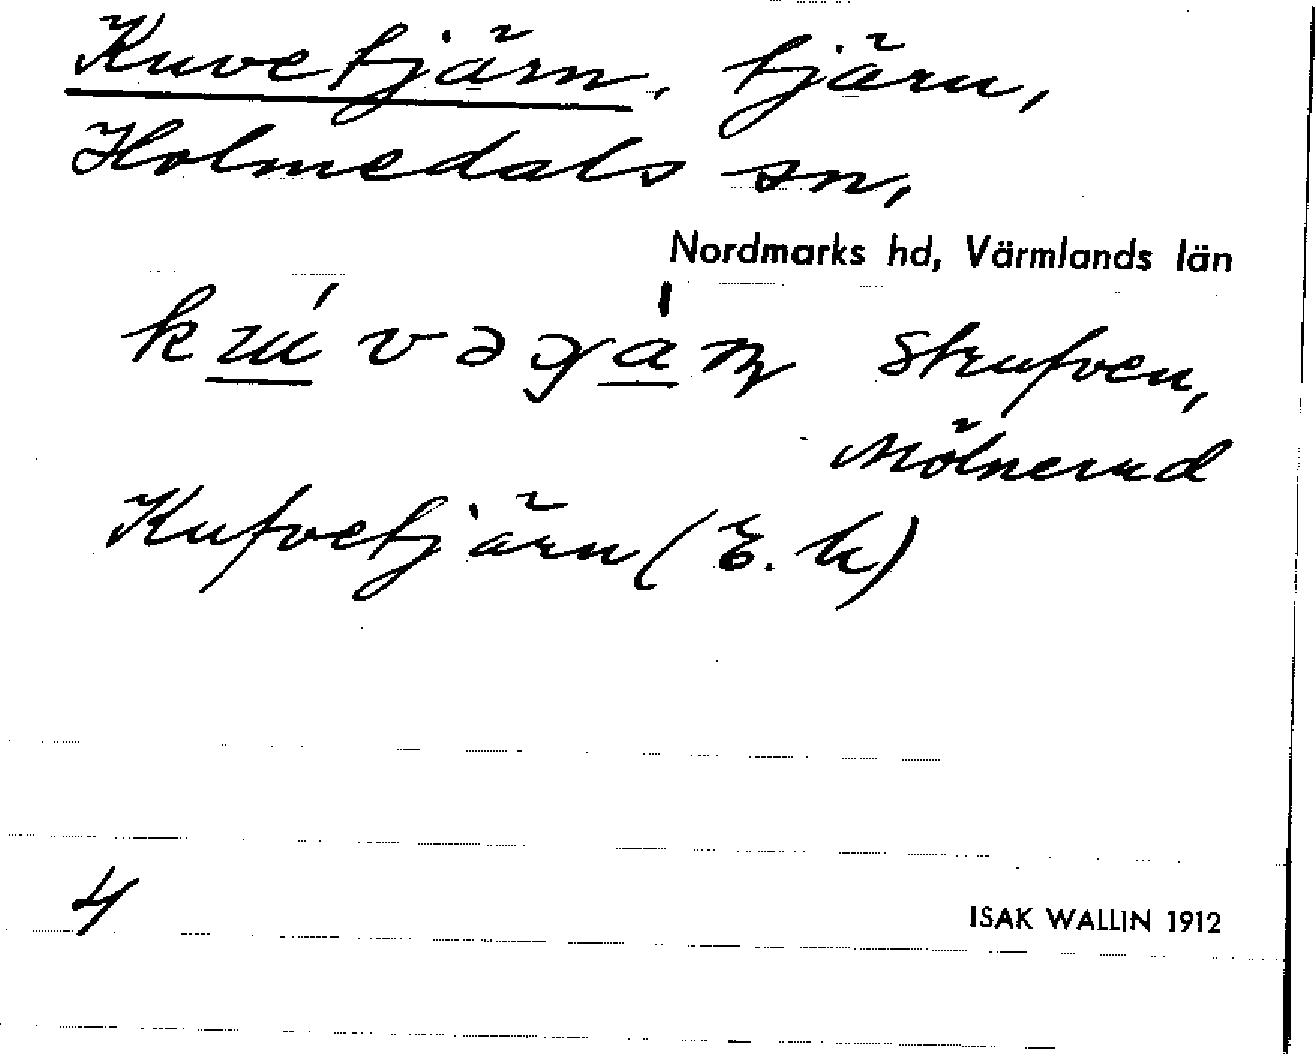 Kuvetjärn, tjärn,
Holmedals sn,
Nordmarks hd, Värmlands län
Strufven,
Mölnerud
Kufvetjärn (E. k)
4
ISAK WALLIN 1912